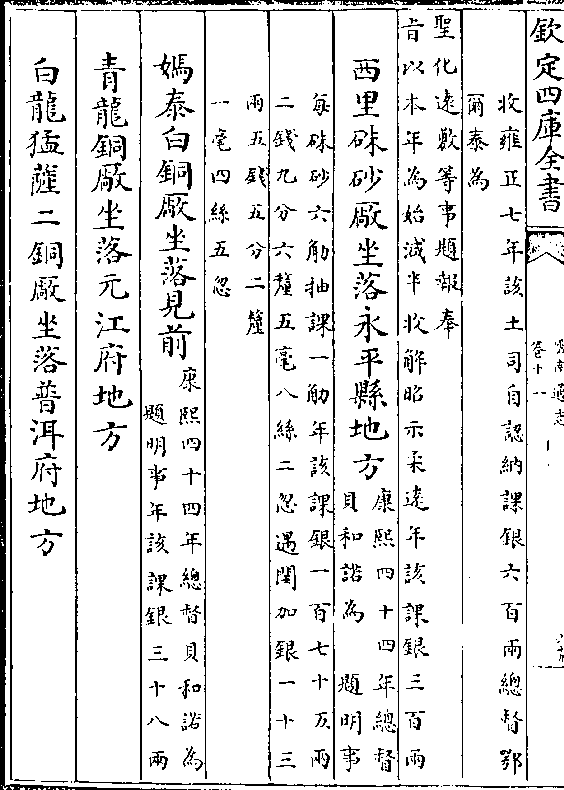 欽定四庫全書
雲南通志
卷十一
收雍正七年該土司自認納課銀六百兩總督鄂
爾泰為
聖化遠敷等事題報奉
㫖以本年為始減半收解昭示柔逺年該課銀三百兩
西里硃砂厰坐落永平縣地方
康熙四十四年總督
貝和諾為 題明事
每硃砂六觔抽課一觔年該課銀一百七十五兩
二錢九分六釐五毫八絲二忽遇閏加銀一十三
兩五錢五分二釐
一毫四絲五忽
媽泰白銅厰坐落見前
康熙四十四年總督貝和諾為
題明事年該課銀三十八兩
青龍銅厰坐落元江府地方
白龍猛薩二銅厰坐落普洱府地方